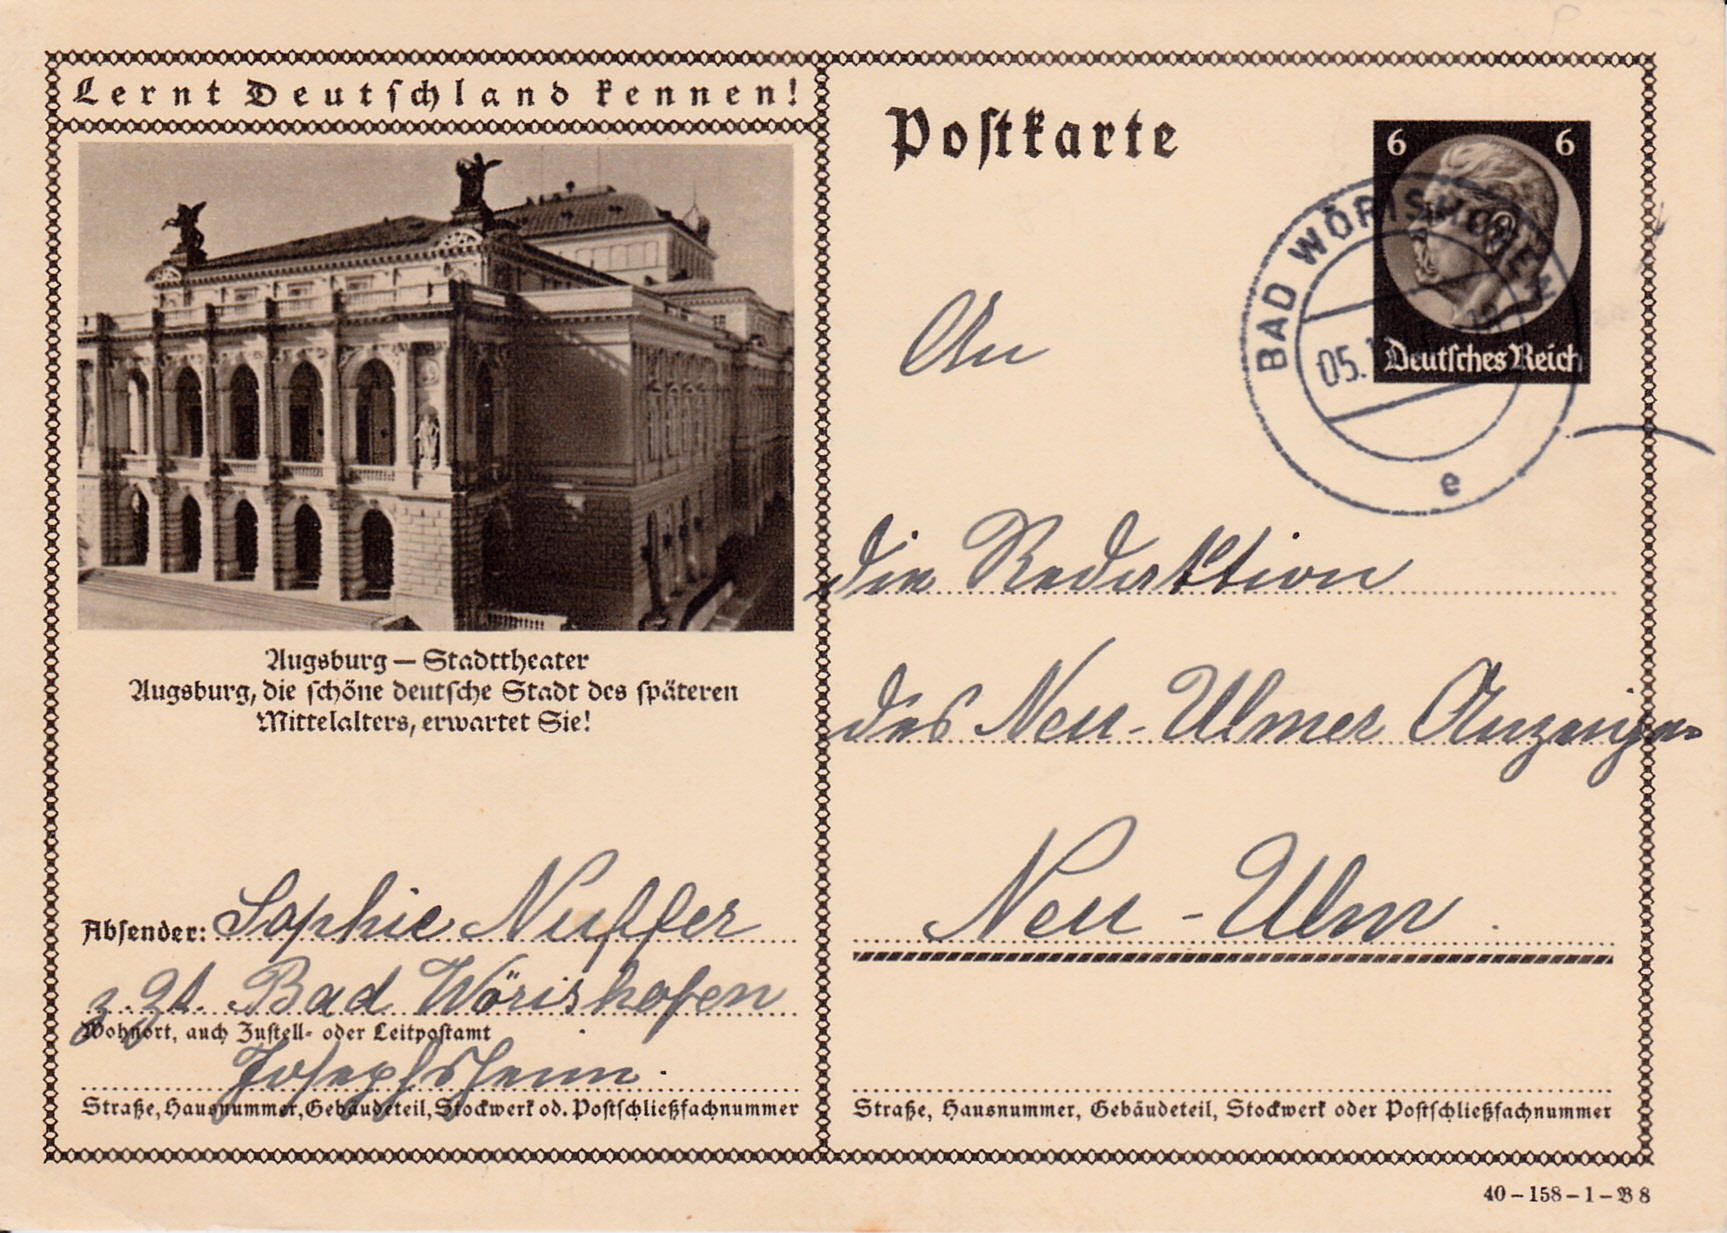 Lernt Deutschland kennen!
Augsburg — Stadttheater
Augsburg, die schöne deutsche Stadt des späteren
Mittelalters, erwartet Sie!
Absender: Sophie Nuffer
z. Zt. Bad Wörishofen
Wohnort, auch Zustell- oder Leitpostamt
Josephsheim.
Straße, Hausnummer, Gebäudeteil, Stockwerk od. Postschließfachnummer
Postkarte
6 6
Deutsches Reich
BAD WÖRISHOFEN
05.
e
An
die Redaktion
des Neu-Ulmer Anzeiger
Neu-Ulm.
Straße, Hausnummer, Gebäudeteil, Stockwerk oder Postschließfachnummer
40–158–1–B 8